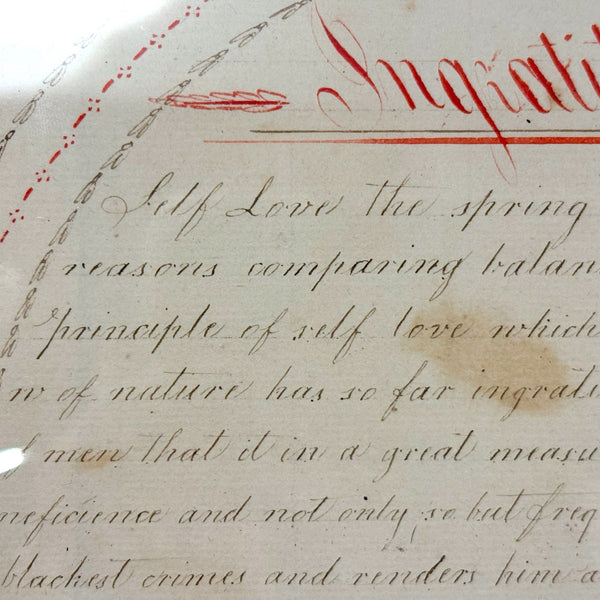 Ingratit
Self Love the spring
reasons comparing balan
principle of self love which
w of nature has so far ingrati
f men that it in a great measu
neficience and not only so but freq
blackest crimes and renders him a